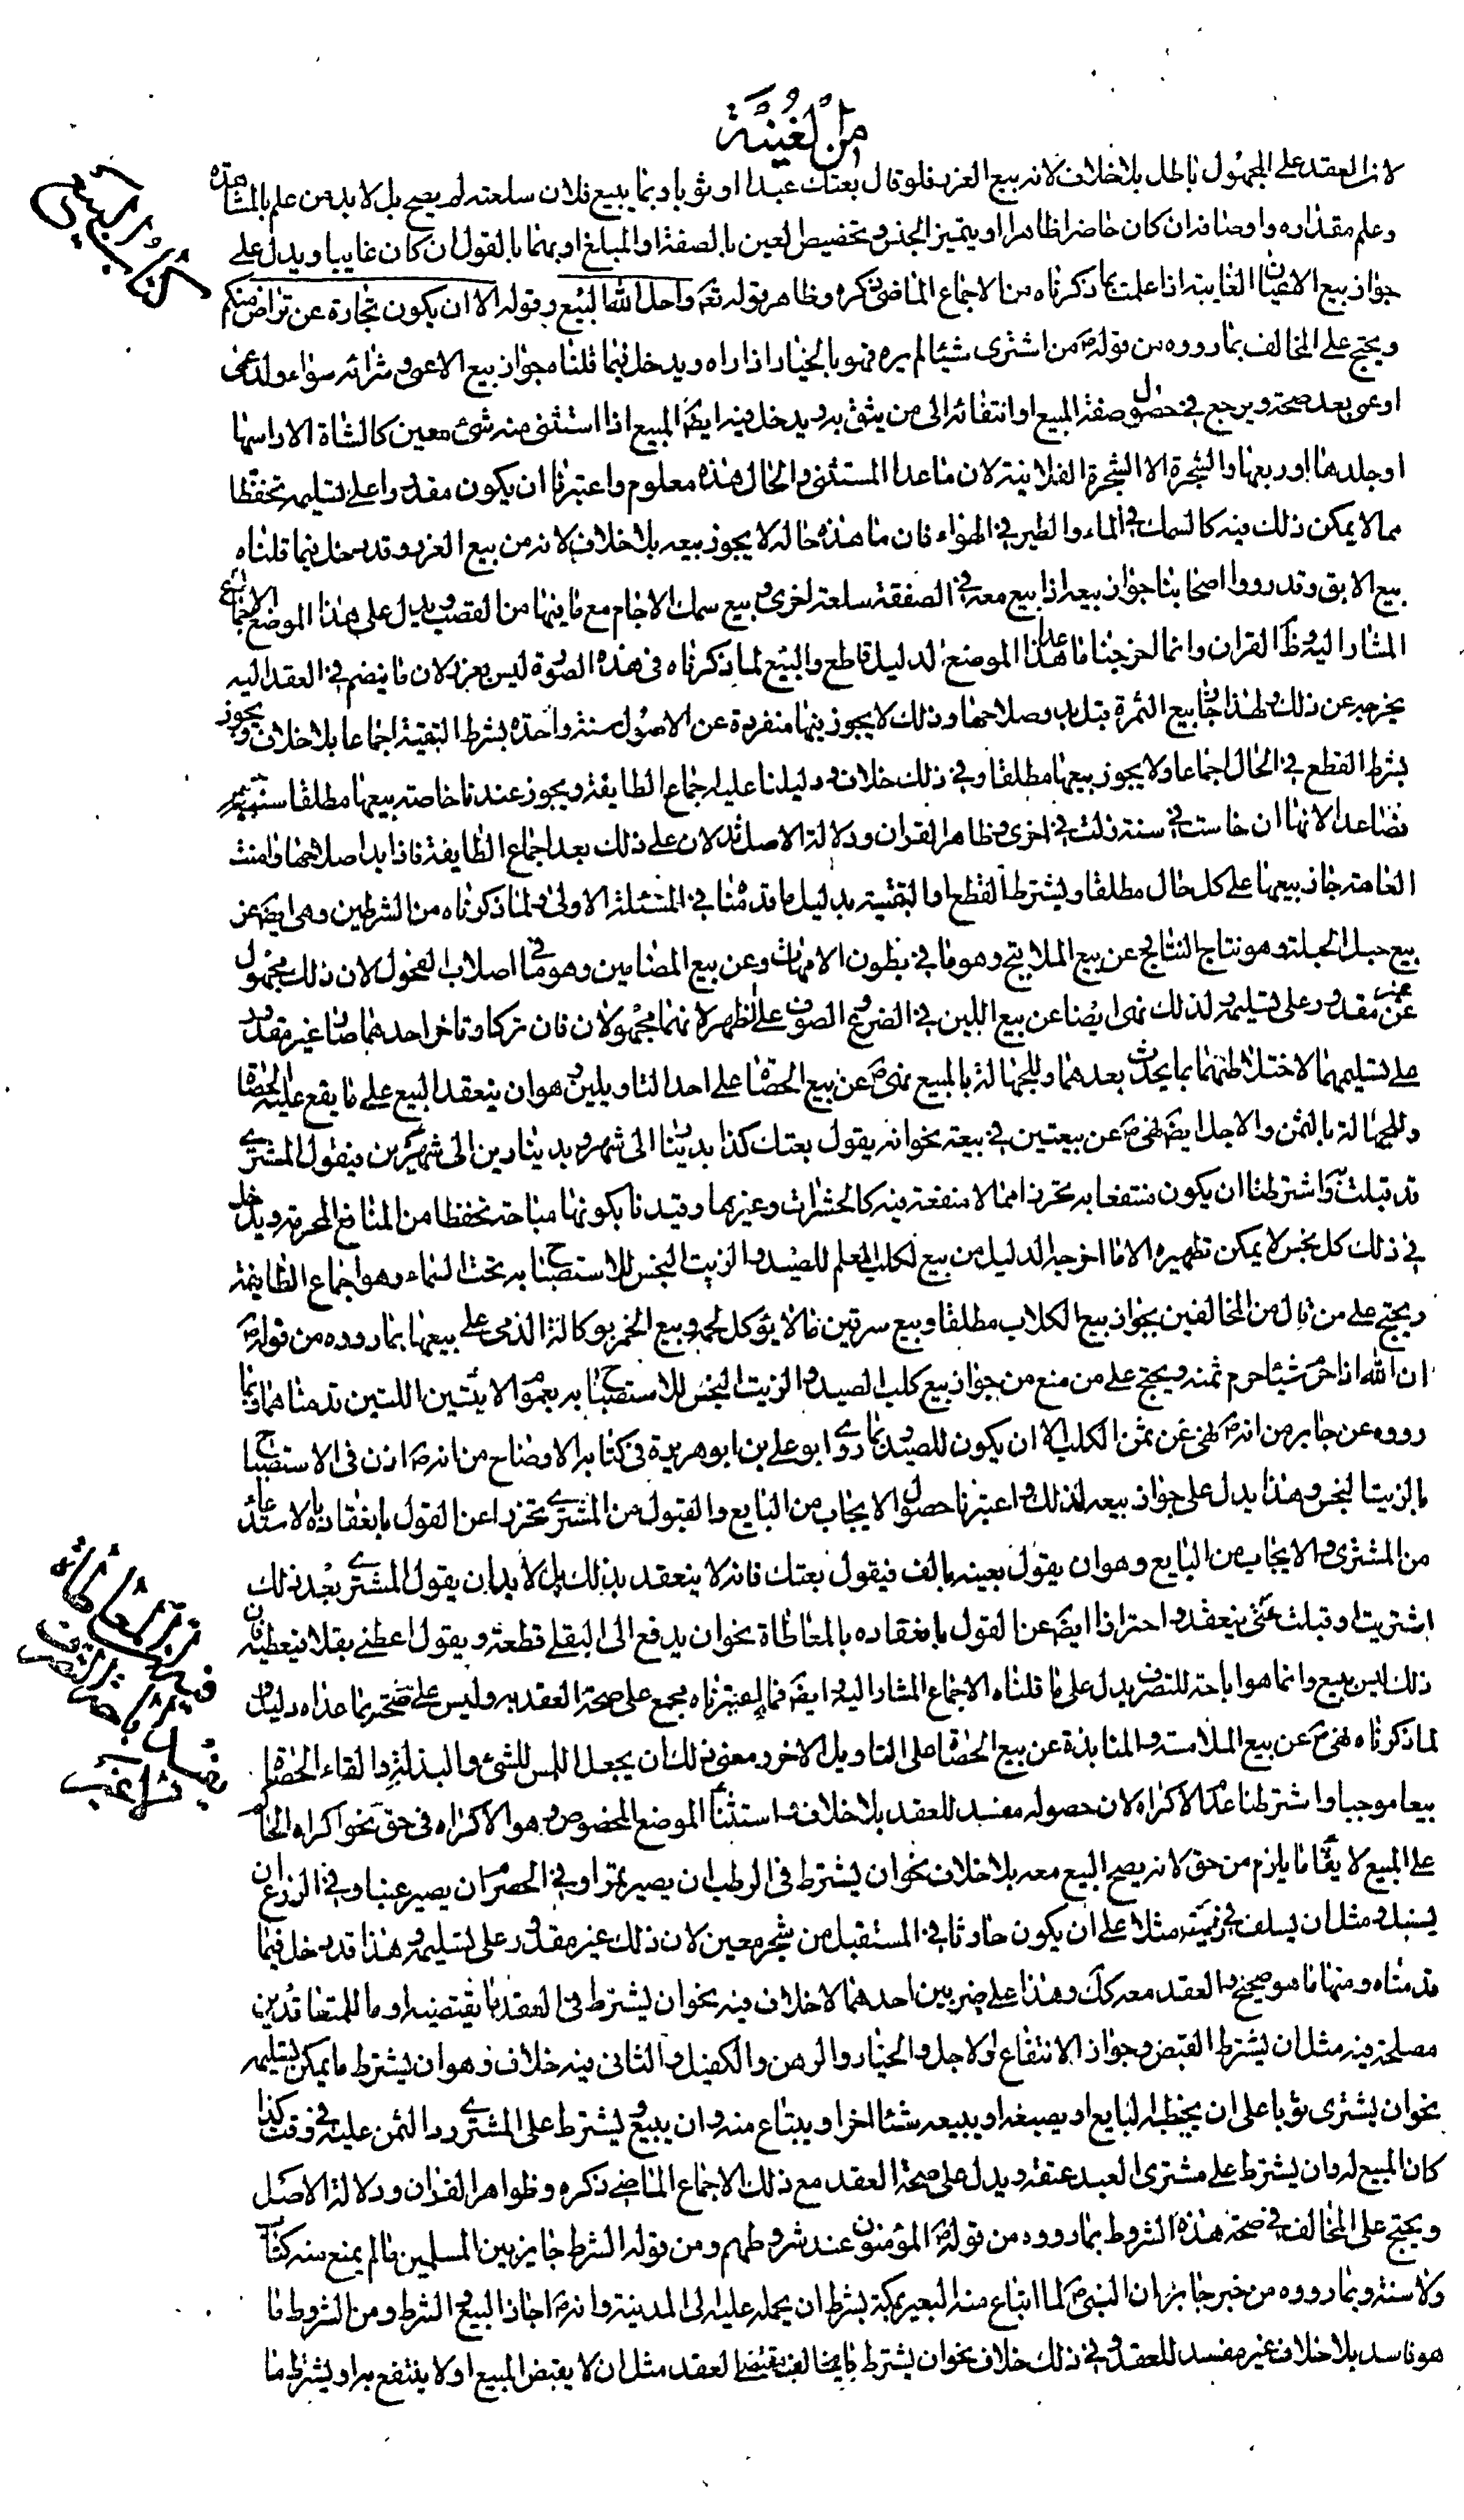 من الغنية
لان العقد على المجهول باطل بلا خلاف لانه بيع الغرر فلو قال بعتك عبدا او ثوبا او بما يبيع فلان سلعته لم يصح بل لا بد من علم بالمشاهدة
وعلم مقداره واوصافه ان كان حاضرا ظاهرا او يتميز الجنس وتخصيص العين بالصفة او المبلغ او بهما بالقول ان كان غايبا ويدل على
جواز بيع الاعيان الغايبة اذا علمت بما ذكرناه من الاجماع الماضي ذكره وظاهر قوله تعم واحل الله البيع وقوله الا ان يكون تجارة عن تراض منكم
ويحتج على المخالف بما رووه من قوله ص من اشترى شيئا لم يره فهو بالخيار اذا راه ويدخل فيما قلناه جواز بيع الاعمى وشرائه سواء ولد اعمى
او عمى بعد صحة ويرجع في حصول صفة المبيع او انتفائه الى من يثق به ويدخل فيه ايضا المبيع اذا استثنى منه شئ معين كالشاة الا راسها
او جلدها او ربعها والشجرة الا الشجرة الفلانية لان ما عدا المستثنى والحال هذه معلوم واعتبرنا ان يكون مقدورا على تسليمه تحفظا
مما لا يمكن ذلك فيه كالسمك في الماء والطير في الهواء فان ما هذه حاله لا يجوز بيعه بلا خلاف لانه من بيع الغرر وقد دخل فيما قلناه
بيع الابق وقد رووا اصحابنا جواز بيعه اذا بيع معه في الصفقة سلعة اخرى وبيع سمك الاجام مع ما فيها من القصب ويدل على هذا الموضع الاجماع
المشار اليه وظ القران وانما اخرجنا ما عدا هذا الموضع لدليل قاطع والبيع لما ذكرناه في هذه الصورة ليس بغرر لان ما ينضم في العقد اليه
يخرجه عن ذلك ولهذا جاز بيع الثمرة قبل بدو صلاحها وذلك لا يجوز فيها منفردة عن الاصول سنة واحدة بشرط التبقية اجماعا بلا خلاف ويجوز
بشرط القطع في الحال اجماعا ولا يجوز بيعها مطلقا وفي ذلك خلاف ودليلنا عليه اجماع الطايفة ويجوز عندنا خاصة بيعها مطلقا سنتين
فصاعدا لانها ان خاست في سنة زكت في اخرى وظاهر القران ودلالة الاصل يدلان على ذلك بعد اجماع الطايفة فاذا بدا صلاحها وامنت
العاهة جاز بيعها على كل حال مطلقا وبشرط القطع او التبقية بدليل ما قدمنا في المسئلة الاولى ولما ذكرناه من الشرطين وهى ايضا عن
بيع حبل الحبلة وهو نتاج النتايج عن بيع الملاقيح وهو ما في بطون الامهات وعن بيع المضامين وهو ما في اصلاب الفحول لان ذلك مجهول
غير مقدور على تسليمه ولذلك نهى ايضا عن بيع اللبن في الضرع والصوف على الظهر لانهما مجهولان فان تركا وتاخر احدهما صار غير مقدور
على تسليمهما لاختلاطهما بما يحدث بعدهما وللجهالة بالمبيع نهى ص عن بيع الحصاة على احد التاويلين وهو ان ينعقد البيع على ما يقع عليه الحصاة
وللجهالة بالثمن والاجل ايضا نهى ص عن بيعتين في بيعة نحو انه يقول بعتك كذا بدينار الى شهر وبدينارين الى شهرين فيقول المشترى
قد قبلت واشترطنا ان يكون منتفعا به تحرزا مما لا منفعة فيه كالحشرات وغيرها وقيدنا بكونها مباحة تحفظا من المنافع المحرمة ويدخل
في ذلك كل نجس لا يمكن تطهيره الا ما اخرجه الدليل من بيع الكلب المعلم للصيد والزيت النجس للاستصباح به تحت السماء وهو اجماع الطايفة
ويحتج على من قال من المخالفين بجواز بيع الكلاب مطلقا وبيع سرقين ما لا يؤكل لحمه وبيع الخمر بوكالة الذمى على بيعها بما رووه من قوله ص
ان الله اذا حرم شيئا حرم ثمنه ويحتج على من منع من جواز بيع كلب الصيد والزيت النجس للاستصباح به بعموم الايتين اللتين قدمناهما وبما
رووه عن جابر من انه ص نهى عن ثمن الكلب الا ان يكون للصيد وبما روى ابو على بن ابو هريرة في كتابه الافصاح من انه ص اذن في الاستصباح
بالزيت النجس وهذا يدل على جواز بيعه لذلك واعتبرنا حصول الايجاب من البايع والقبول من المشترى تحرزا عن القول بانعقاده بالاستدعاء
من المشترى والايجاب من البايع وهو ان يقول بعينه بالف فيقول بعتك فانه لا ينعقد بذلك بل لا بد ان يقول المشترى بعد ذلك
اشتريت او قبلت حتى ينعقد واحترازا ايضا عن القول بانعقاده بالمعاطاة نحو ان يدفع الى البقلى قطعة ويقول اعطنى بقلا فيعطيه فان
ذلك ليس ببيع وانما هو اباحة للتصرف يدل على ما قلناه الاجماع المشار اليه وايضا فما اعتبرناه مجمع على صحة العقد به وليس على صحته بما عداه دليل و
لما ذكرناه نهى ص عن بيع الملامسة والمنابذة عن بيع الحصاة على التاويل الاخر ومعنى ذلك ان يجعل اللمس للشئ والنبذ له والقاء الحصاة
بيعا موجبا واشترطنا عدم الاكراه لان حصوله مفسد للعقد بلا خلاف واستثنينا الموضع المخصوص وهو الاكراه في حق نحو اكراه الحاكم
على البيع لايفاء ما يلزم من حق لانه يصح البيع معه بلا خلاف نحو ان يشترط في الرطب ان يصير تمرا وفي الحصرم ان يصير عنبا وفي الزرع ان
يسنبل ومثل ان يسلف في زيت مثلا على ان يكون حادثا في المستقبل من شجر معين لان ذلك غير مقدور على تسليمه وهذا قد دخل فيما
قدمناه ومنها ما هو صحيح والعقد معه كك وهذا على ضربين احدهما لا خلاف فيه نحو ان يشترط في العقد ما يقتضيه او ما للمتعاقدين
مصلحة فيه مثل ان يشترط القبض وجواز الانتفاع او الاجل والخيار والرهن والكفيل والثاني فيه خلاف وهو ان يشترط ما يمكن تسليمه
نحو ان يشترى ثوبا على ان يخيطه البايع او يصبغه او يبيعه شئا اخر او يبتاع منه وان يبيع ويشترط على المشترى رد الثمن عليه في وقت كذا
كان المبيع له وان يشترط على مشترى العبد عتقه ويدل على صحة العقد مع ذلك الاجماع الماضي ذكره وظواهر القران ودلالة الاصل
ويحتج على المخالف في صحة هذه الشروط بما رووه من قوله ص المؤمنون عند شروطهم ومن قوله الشرط جايز بين المسلمين ما لم يمنع منه كتاب
ولا سنة وبما رووه من خبر جابر ان النبى ص لما ابتاع منه البعير بمكة بشرط ان يحمله عليه الى المدينة وانه ص اجاز البيع والشرط ومن الشروط ما
هو فاسد بلا خلاف غير مفسد للعقد وفي ذلك خلاف نحو ان يشترط ما يخالف مقتضى العقد مثل ان لا يقبض المبيع او لا ينتفع به او يشترط ما